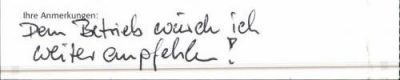 Ihre Anmerkungen:
Dem Betrieb würde ich
weiterempfehlen!